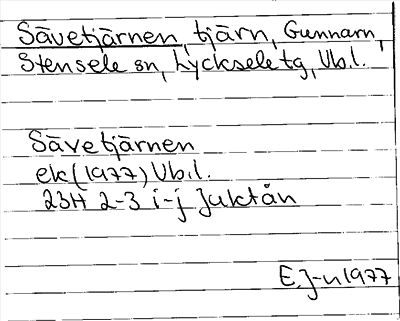 Sävetjärnen, tjärn, Gunnarn,
Stensele sn, Lycksele tg, Vb.l.
Sävetjärnen
ek (1977) Vb.l.
23H 2-3 i-j Juktån
E.J-n 1977